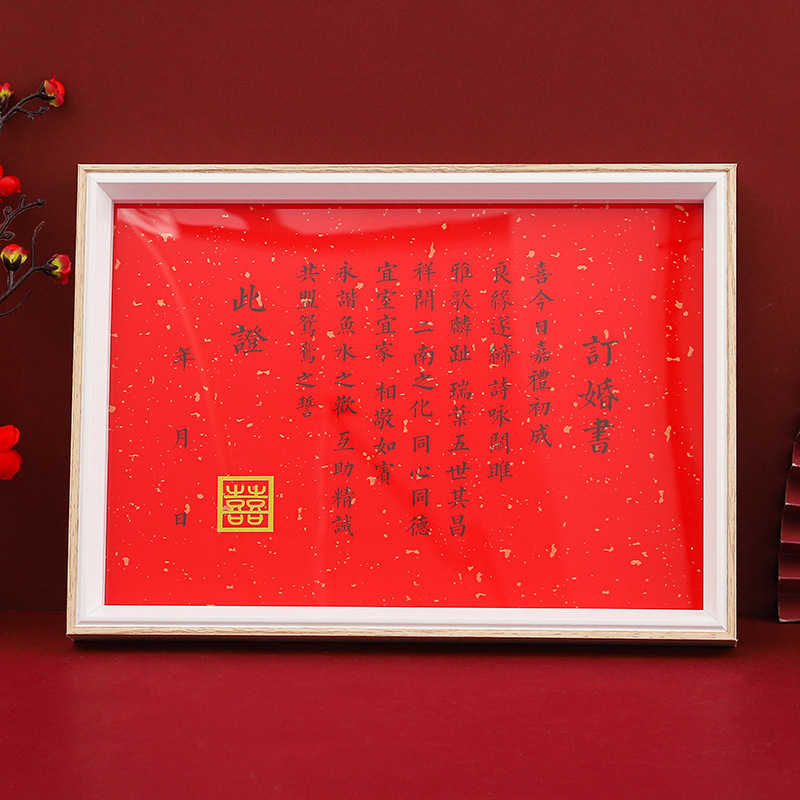 訂婚書
喜今日嘉禮初成
良緣遂締 詩咏關雎
雅歌麟趾 瑞葉五世其昌
祥開二南之化 同心同德
宜室宜家 相敬如賓
永諧魚水之歡 互助精誠
共盟鴛鴦之誓
此證
年 月 日
囍